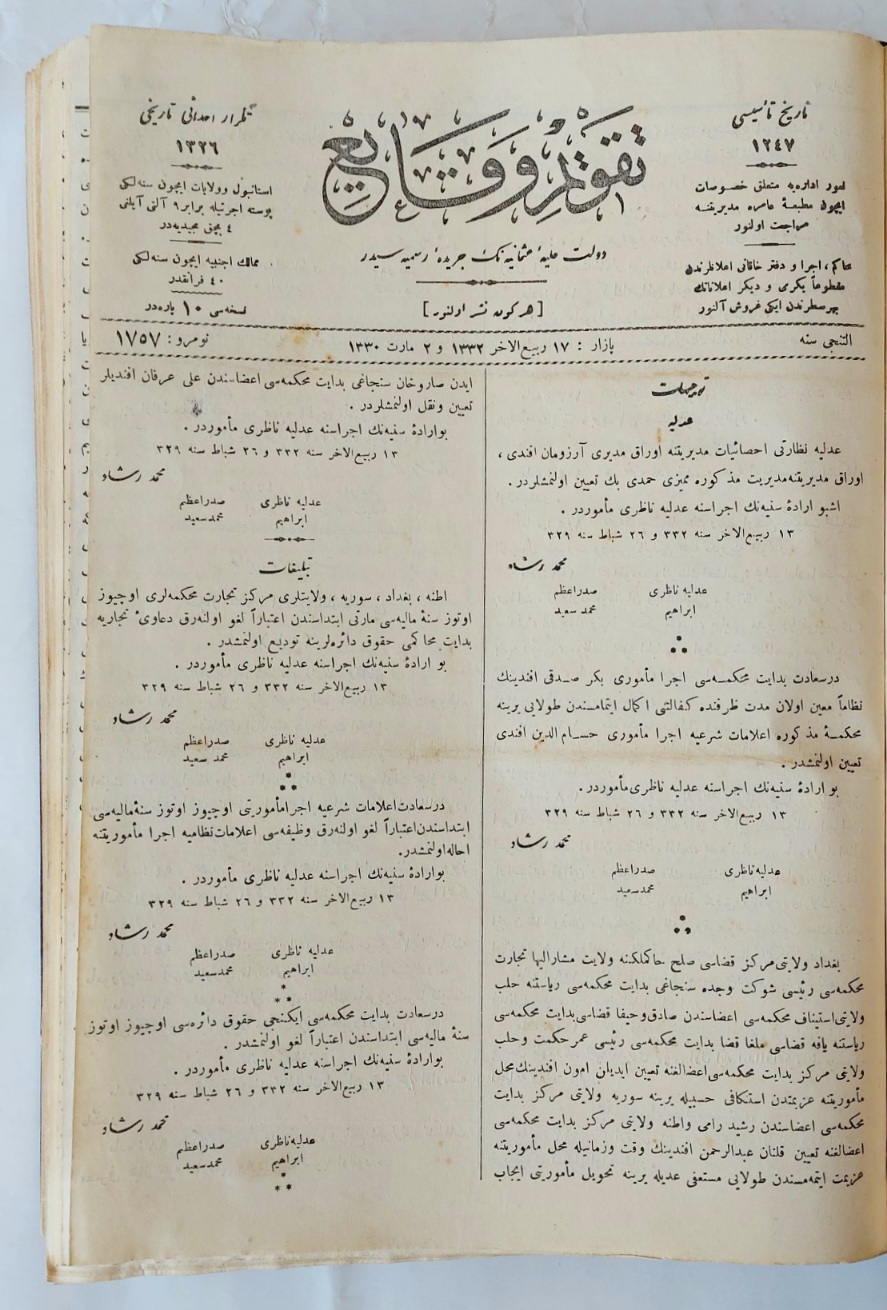 تاريخ تأسيسى
١٢٤٧
امور اداره‌يه متعلق خصوصات
ايچون مطبعۀ عامره مديريتنه
مراجعت اولنور
محاكم، اجرا و دفتر خاقانى اعلانلرندن
مقطوعاً يگرمى و ديگر اعلاناتك
بهر سطرندن ايكى غروش آلنور
تقويم وقايع
دولت عليۀ عثمانيه‌نك جريدۀ رسميه سيدر
[ هر كون نشر اولنور ]
تكرار احداثى تاريخى
١٣٢٦
استانبول وولايات ايچون سنه لكى
پوسته اجرتيله برابر ٩ آلتى آيلغى
٤ بچق مجيديه در
ممالك اجنبيه ايچون سنه لكى
٤٠ فرانقدر
نسخه سى ١٠ پاره در
التنجى سنه
پازار : ١٧ ربيع الاخر ١٣٣٢ و ٢ مارت ١٣٣٠
نومرو : ١٧٥٧
توجيهات
عدليه
عدليه نظارتى احصائيات مديريتنه اوراق مديرى آرزومان افندى ،
اوراق مديريتنه مديريت مذكوره مميزى حمدى بك تعيين اولنمشلردر .
اشبو ارادۀ سنيه نك اجراسنه عدليه ناظرى مأموردر .
١٣ ربيع الاخر سنه ٣٣٢ و ٢٦ شباط سنه ٣٢٩
محمد رشاد
عدليه ناظرى
ابراهيم
صدراعظم
محمد سعيد
درسعادت بدايت محكمه سى اجرا مأمورى بكر صدقى افندينك
نظاماً معين اولان مدت ظرفنده كفالتى اكمال ايتمامسندن طولايى يرينه
محكمۀ مذكوره اعلامات شرعيه اجرا مأمورى حسام الدين افندى
تعيين اولنمشدر .
بو ارادۀ سنيه نك اجراسنه عدليه ناظرى مأموردر .
١٣ ربيع الاخر سنه ٣٣٢ و ٢٦ شباط سنه ٣٢٩
محمد رشاد
عدليه ناظرى
ابراهيم
صدراعظم
محمد سعيد
بغداد ولايتى مركز قضاسى صلح حاكملكنه ولايت مشاراليها تجارت
محكمه سى رئيسى شوكت وجده سنجاغى بدايت محكمه سى رياستنه حلب
ولايتى استيناف محكمه سى اعضاسندن صادق وحيفا قضاسى بدايت محكمه سى
رياستنه يافه قضاسى ملغا قضا بدايت محكمه سى رئيسى عمر حكمت وحلب
ولايتى مركز بدايت محكمه سى اعضالغنه تعيين ايديلان امون افندينك محل
مأموريتنه عزيمتدن استنكافى حسبيله يرينه سوريه ولايتى مركز بدايت
محكمه سى اعضاسندن رشيد رامى واطنه ولايتى مركز بدايت محكمه سى
اعضالغنه تعيين قلنان عبدالرحمن افندينك وقت وزمانيله محل مأموريتنه
عزيمت ايتمه مسندن طولايى مستعفى عديله يرينه تحويل مأموريتى ايجاب
ايدن صاروخان سنجاغى بدايت محكمه سى اعضاسندن على عرفان افنديلر
تعيين ونقل اولنمشلردر .
بوارادۀ سنيه نك اجراسنه عدليه ناظرى مأموردر .
١٣ ربيع الاخر سنه ٣٣٢ و ٢٦ شباط سنه ٣٢٩
محمد رشاد
عدليه ناظرى
ابراهيم
صدراعظم
محمد سعيد
تبليغات
اطنه ، بغداد ، سوريه ، ولايتلرى مركز تجارت محكمه لرى اوچيوز
اوتوز سنۀ ماليه سى مارتى ابتداسندن اعتباراً لغو اولنه رق دعاوئ تجاريه
بدايت محاكمى حقوق دائره لرينه توديع اولنمشدر .
بو ارادۀ سنيه نك اجراسنه عدليه ناظرى مأموردر .
١٣ ربيع الاخر سنه ٣٣٢ و ٢٦ شباط سنه ٣٢٩
محمد رشاد
عدليه ناظرى
ابراهيم
صدراعظم
محمد سعيد
درسعادت اعلامات شرعيه اجرا مأموريتى اوچيوز اوتوز سنۀ ماليه سى
ابتداسندن اعتباراً لغو اولنه رق وظيفه سى اعلامات نظاميه اجرا مأموريتنه
احاله اولنمشدر.
بوارادۀ سنيه نك اجراسنه عدليه ناظرى مأموردر .
١٣ ربيع الاخر سنه ٣٣٢ و ٢٦ شباط سنه ٣٢٩
محمد رشاد
عدليه ناظرى
ابراهيم
صدراعظم
محمد سعيد
درسعادت بدايت محكمه سى ايكنجى حقوق دائره سى اوچيوز اوتوز
سنۀ ماليه سى ابتداسندن اعتباراً لغو اولنمشدر .
بوارادۀ سنيه نك اجراسنه عدليه ناظرى مأموردر .
١٣ ربيع الاخر سنه ٣٣٢ و ٢٦ شباط سنه ٣٢٩
محمد رشاد
عدليه ناظرى
ابراهيم
صدراعظم
محمد سعيد